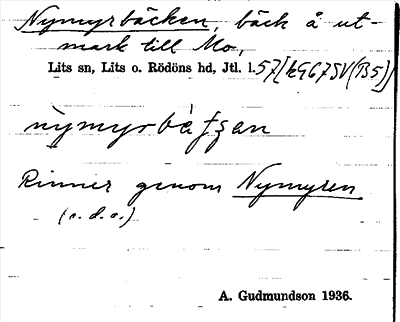 Nymyrbäcken, bäck å ut-
mark till Mo,
Lits sn, Lits o. Rödöns hd, Jtl. l. 57[kG67SV(B5)]
Rinner genom Nymyren
(s.d.o.)
A. Gudmundson 1936.